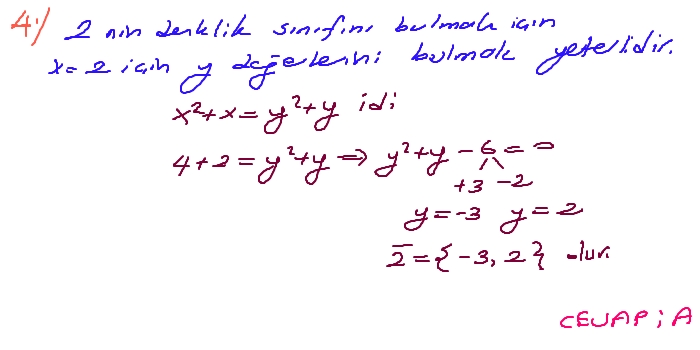 4·) 2 nin denklik sınıfını bulmak için
x=2 için y değerlerini bulmak yeterlidir.
x²+x=y²+y idi
4+2=y²+y ⇒ y²+y-6=0
+3 -2
y=-3 y=2
2̄={-3,2} olur.
CEVAP; A